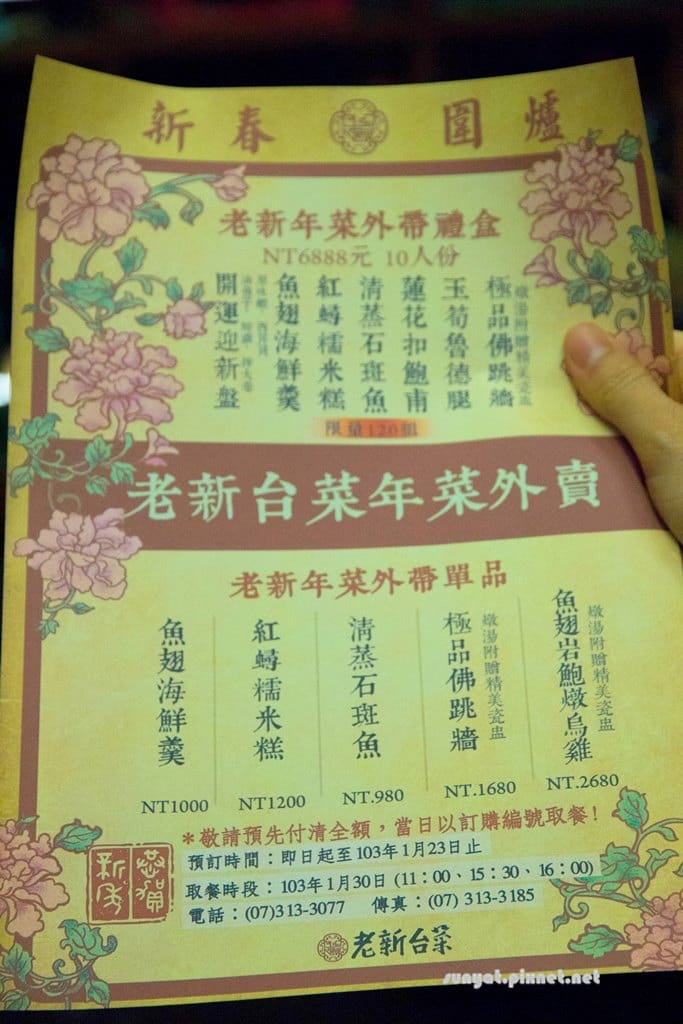 新春 圍爐
老新年菜外帶禮盒
NT6888元 10人份
極品佛跳牆
燉湯附贈精美瓷盅
玉筍魯德腿
蓮花扣鮑甫
清蒸石斑魚
紅蟳糯米糕
魚翅海鮮羹
開運迎新盤
限量120組
老新台菜年菜外賣
老新年菜外帶單品
魚翅岩鮑燉烏雞
燉湯附贈精美瓷盅
NT.2680
極品佛跳牆
燉湯附贈精美瓷盅
NT.1680
清蒸石斑魚
NT.980
紅蟳糯米糕
NT1200
魚翅海鮮羹
NT1000
*敬請預先付清全額，當日以訂購編號取餐!
預訂時間：即日起至103年1月23日止
取餐時段：103年1月30日 (11：00、15：30、16：00)
電話：(07)313-3077 傳真：(07) 313-3185
恭賀新年
老新台菜
sunyat.pixnet.net